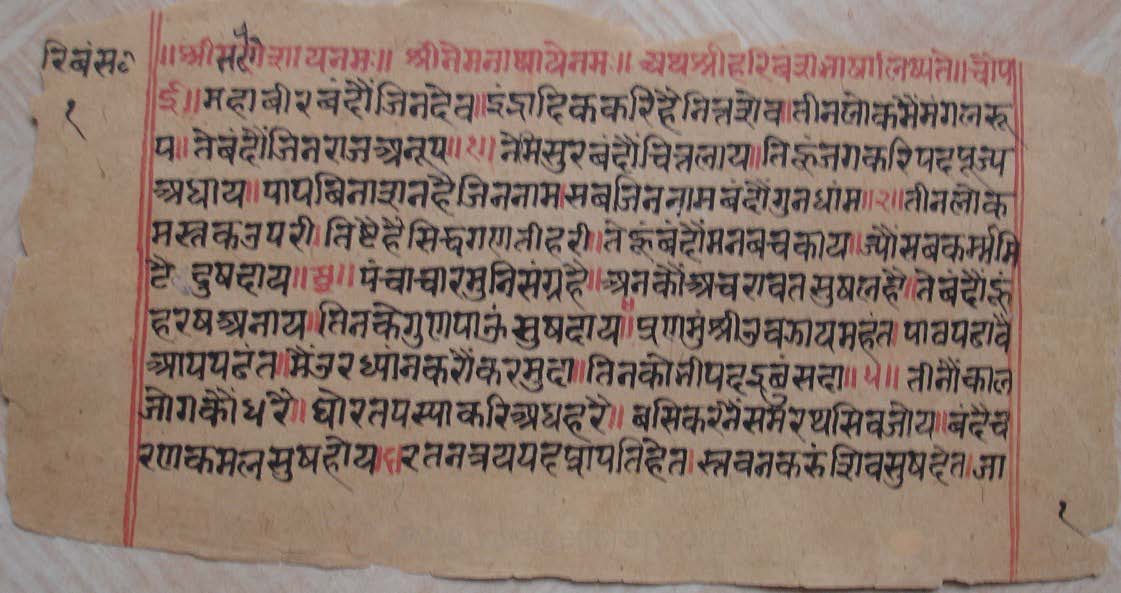 रिबंस०
१
॥श्रीसर्वगेशायनमः॥ श्रीनेमनाथायेनमः॥ अथश्रीहरिबंशभाषालिष्यते॥चौप
ई॥महाबीरबंदौंजिनदेव॥इंद्रादिककरिहैतिनसेव॥तीनलोकमैंमंगलरू
प॥तेबंदौंजिनराजअनूप॥१॥नेमिसुरबंदौंचितलाय॥तिहूंजगकरिपदपूज्य
अघाय॥पापबिनाशनहैजिननाम॥सबजिननामबंदौंगुनधांम॥२॥तीनलोक
मस्तकउपरी॥तिष्टैहैसिद्धगणतीहरी॥तेहूंबंदौंमनबचकाय॥ज्यौंसबकर्म्ममि
टै दुषदाय॥३॥पंचाचारमुनिसंग्रहै॥अनकौंअचरावतसुषलहै॥तेबंदौंहूं
हरषअनाय॥तिनकेगुणपाऊंसुषदाय॥४॥प्रणमुंश्रीउवझायमहंत॥पावपढावै
आपपढंत॥मैंउरध्यानकरौंकरमुदा॥तिनकोनीपदइबंसदा॥५॥तीनौंकाल
जोगकौंधरै॥घोरतपस्याकरिअघहरै॥बसिकरनैंसमरथसिवजोय॥बंदैच
रणकमलसुषहोय॥६॥रतनत्रययदप्रापतिहेत॥स्तवनकरुंशिवसुषहेत॥जा
१